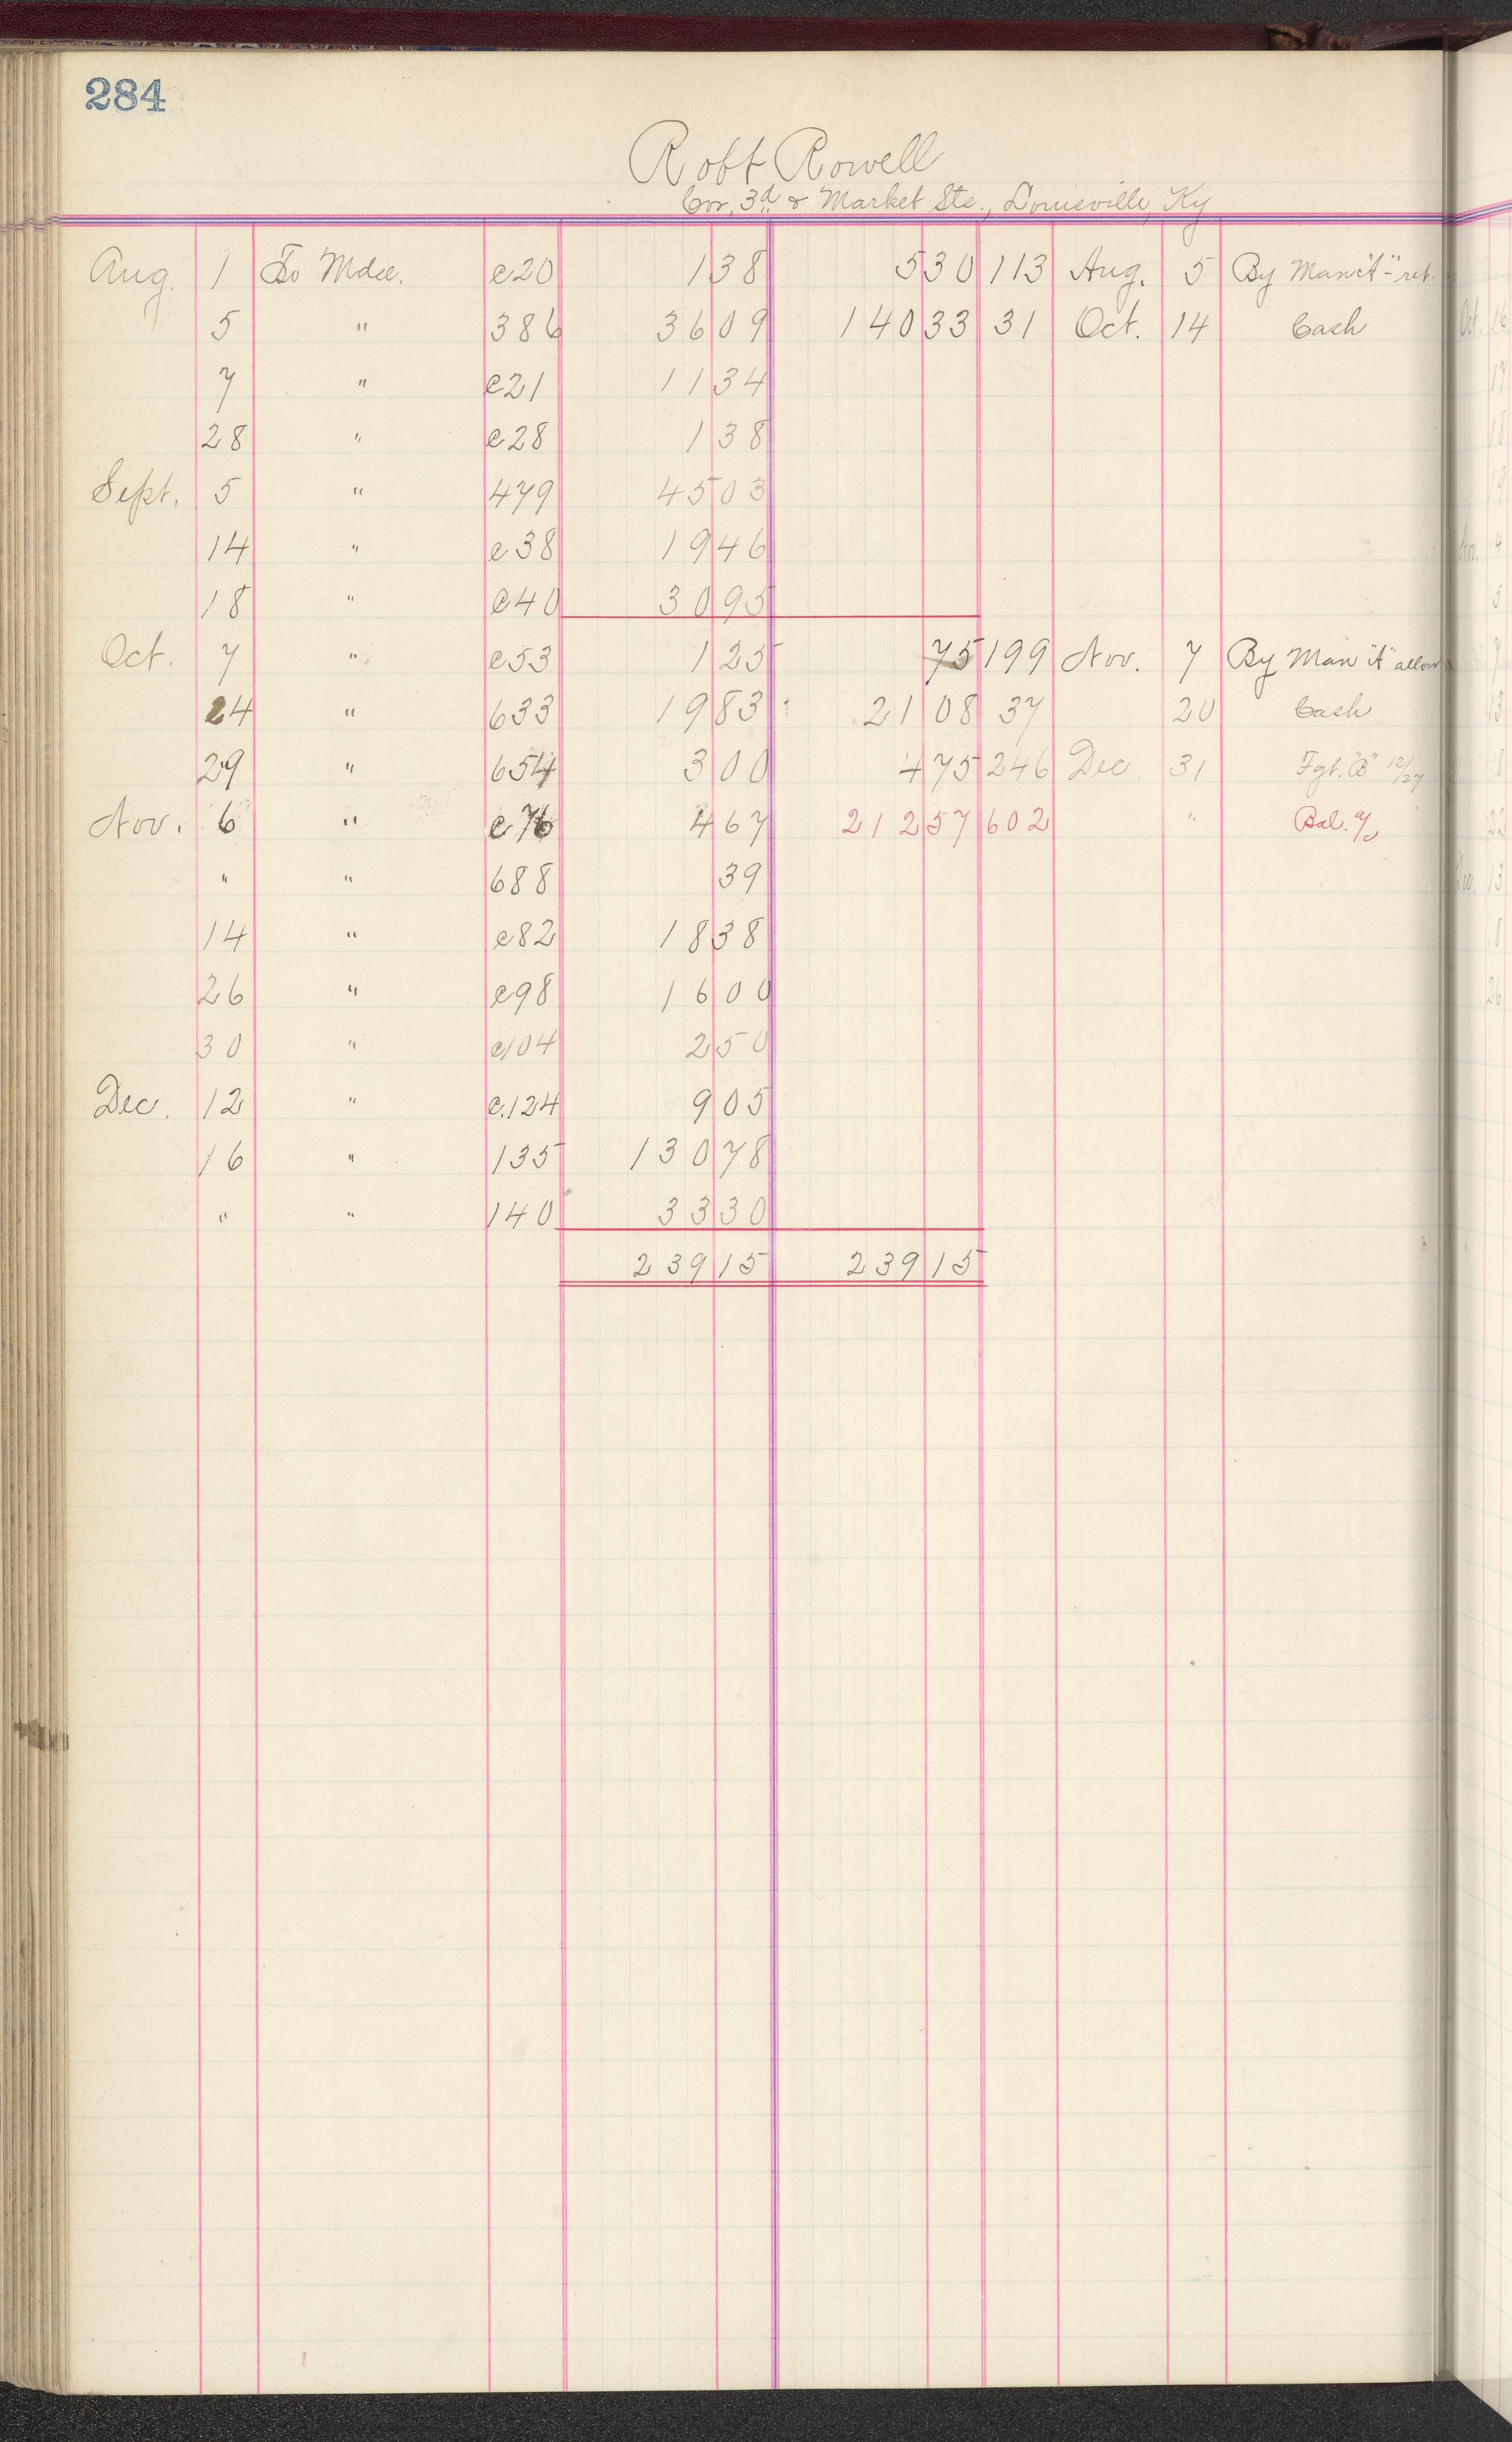 284
Robt Rowell
Cor. 3d & Market Sts., Louisville, Ky
Aug. 1 To Mdse. c20 1 38 5 30 113 Aug. 5 By Man "A" - ret.
5 " 386 36 09 140 33 31 Oct. 14 Cash
7 " c21 11 34
28 " c28 1 38
Sept. 5 " 479 45 03
14 " c38 19 46
18 " c40 30 95
Oct. 7 " c53 1 25 75 199 Nov. 7 By Man "A" allow
24 " 633 19 83 21 08 37 20 Cash
29 " 654 3 00 4 75 246 Dec. 31 Fgt. "B" 12/27
Nov. 6 " c76 4 67 212 57 602 " Bal. %
" " 688 39
14 " c82 18 38
26 " c98 16 00
30 " c104 2 50
Dec. 12 " c.124 9 05
16 " 135 130 78
" " 140 33 30
239 15 239 15